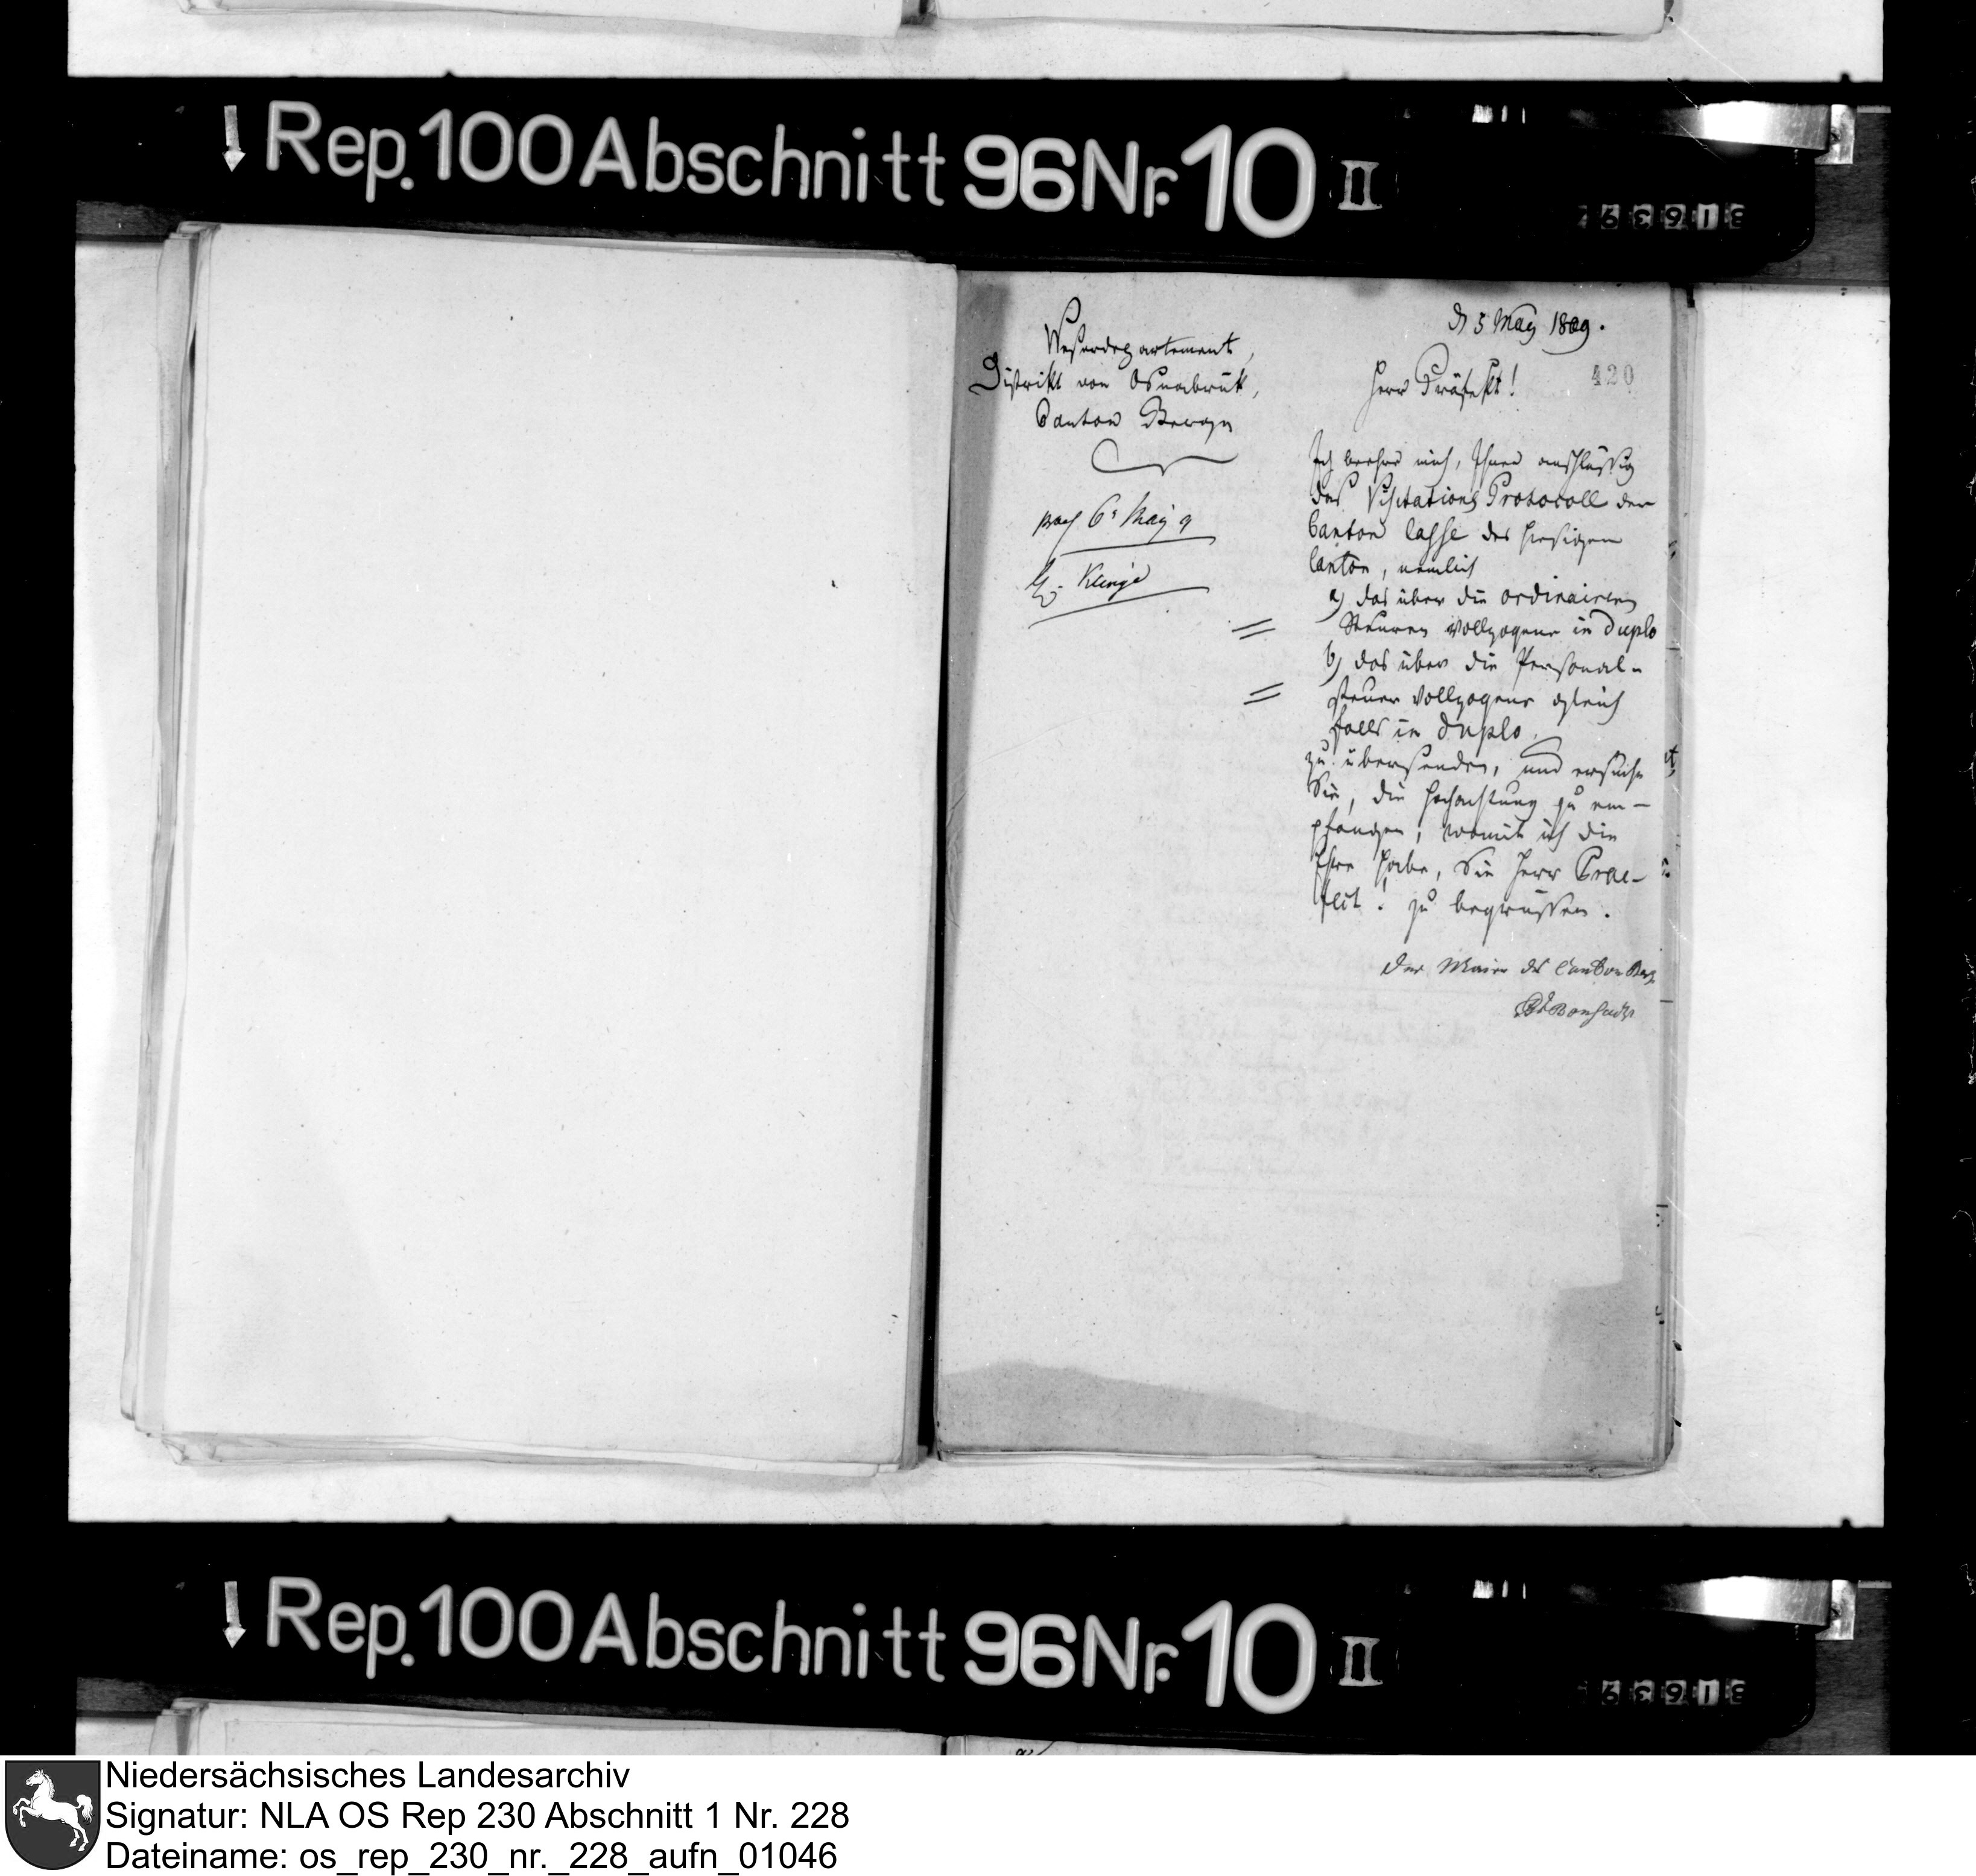 Rep. 100 Abschnitt 96 Nr. 10 II
Weserdepartement,
Distrikt von Osnabrück,
Canton Iburg
6 May 9
Klinge
d 5 May 1809.
420
Herr Präfekt!
Ich beehre mich, Ihnen anschlüssig
das Visitations Protocoll der
Canton Casse des hiesigen
Canton, nemlich
a) das über die ordinairen
Steuren vollzogene in Duplo
b) das über die Personal-
steuer vollzogene gleich
falls in Duplo.
zu übersenden, und ersuche
Sie, die Hochachtung zu em-
pfangen, womit ich die
Ehre habe, Sie Herr Prae-
fect! zu begrüssen.
Der Maire des Canton
Rep. 100 Abschnitt 96 Nr. 10 II
Niedersächsisches Landesarchiv
Signatur: NLA OS Rep 230 Abschnitt 1 Nr. 228
Dateiname: os_rep_230_nr._228_aufn_01046